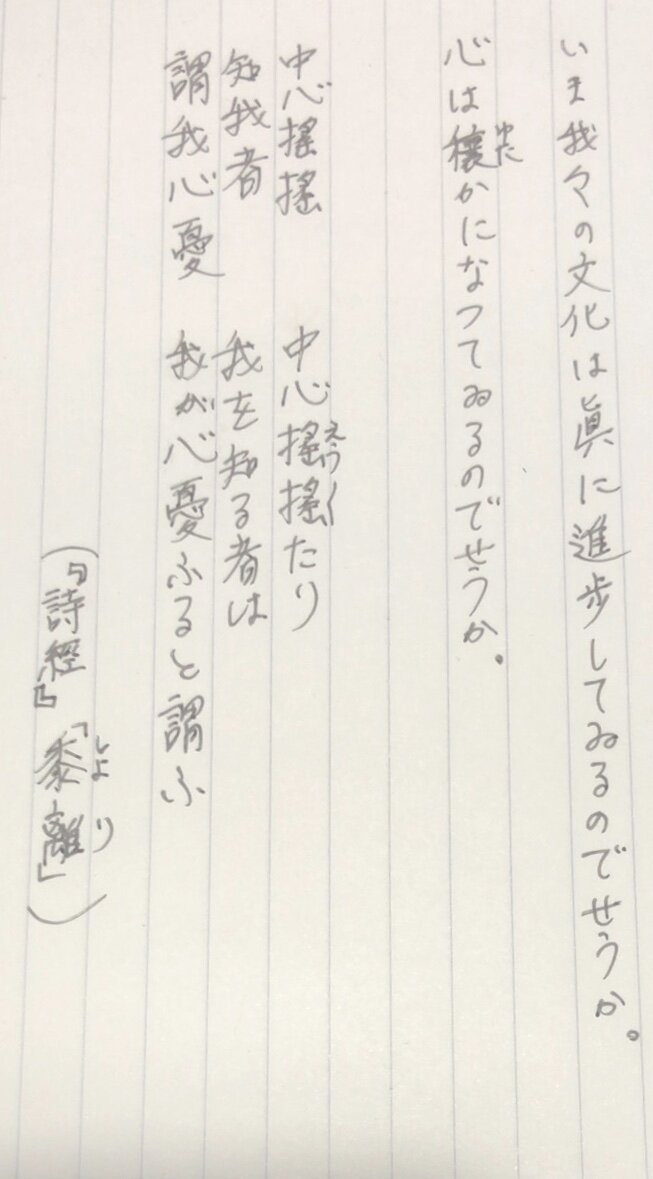 いま我々の文化は眞に進歩してゐるのでせうか。
心は穣かになつてゐるのでせうか。
ゆた
中心搖搖　中心搖搖たり
えう〱
知我者　我を知る者は
謂我心憂　我が心憂ふると謂ふ
（『詩經』「黍離」）
しよ　り